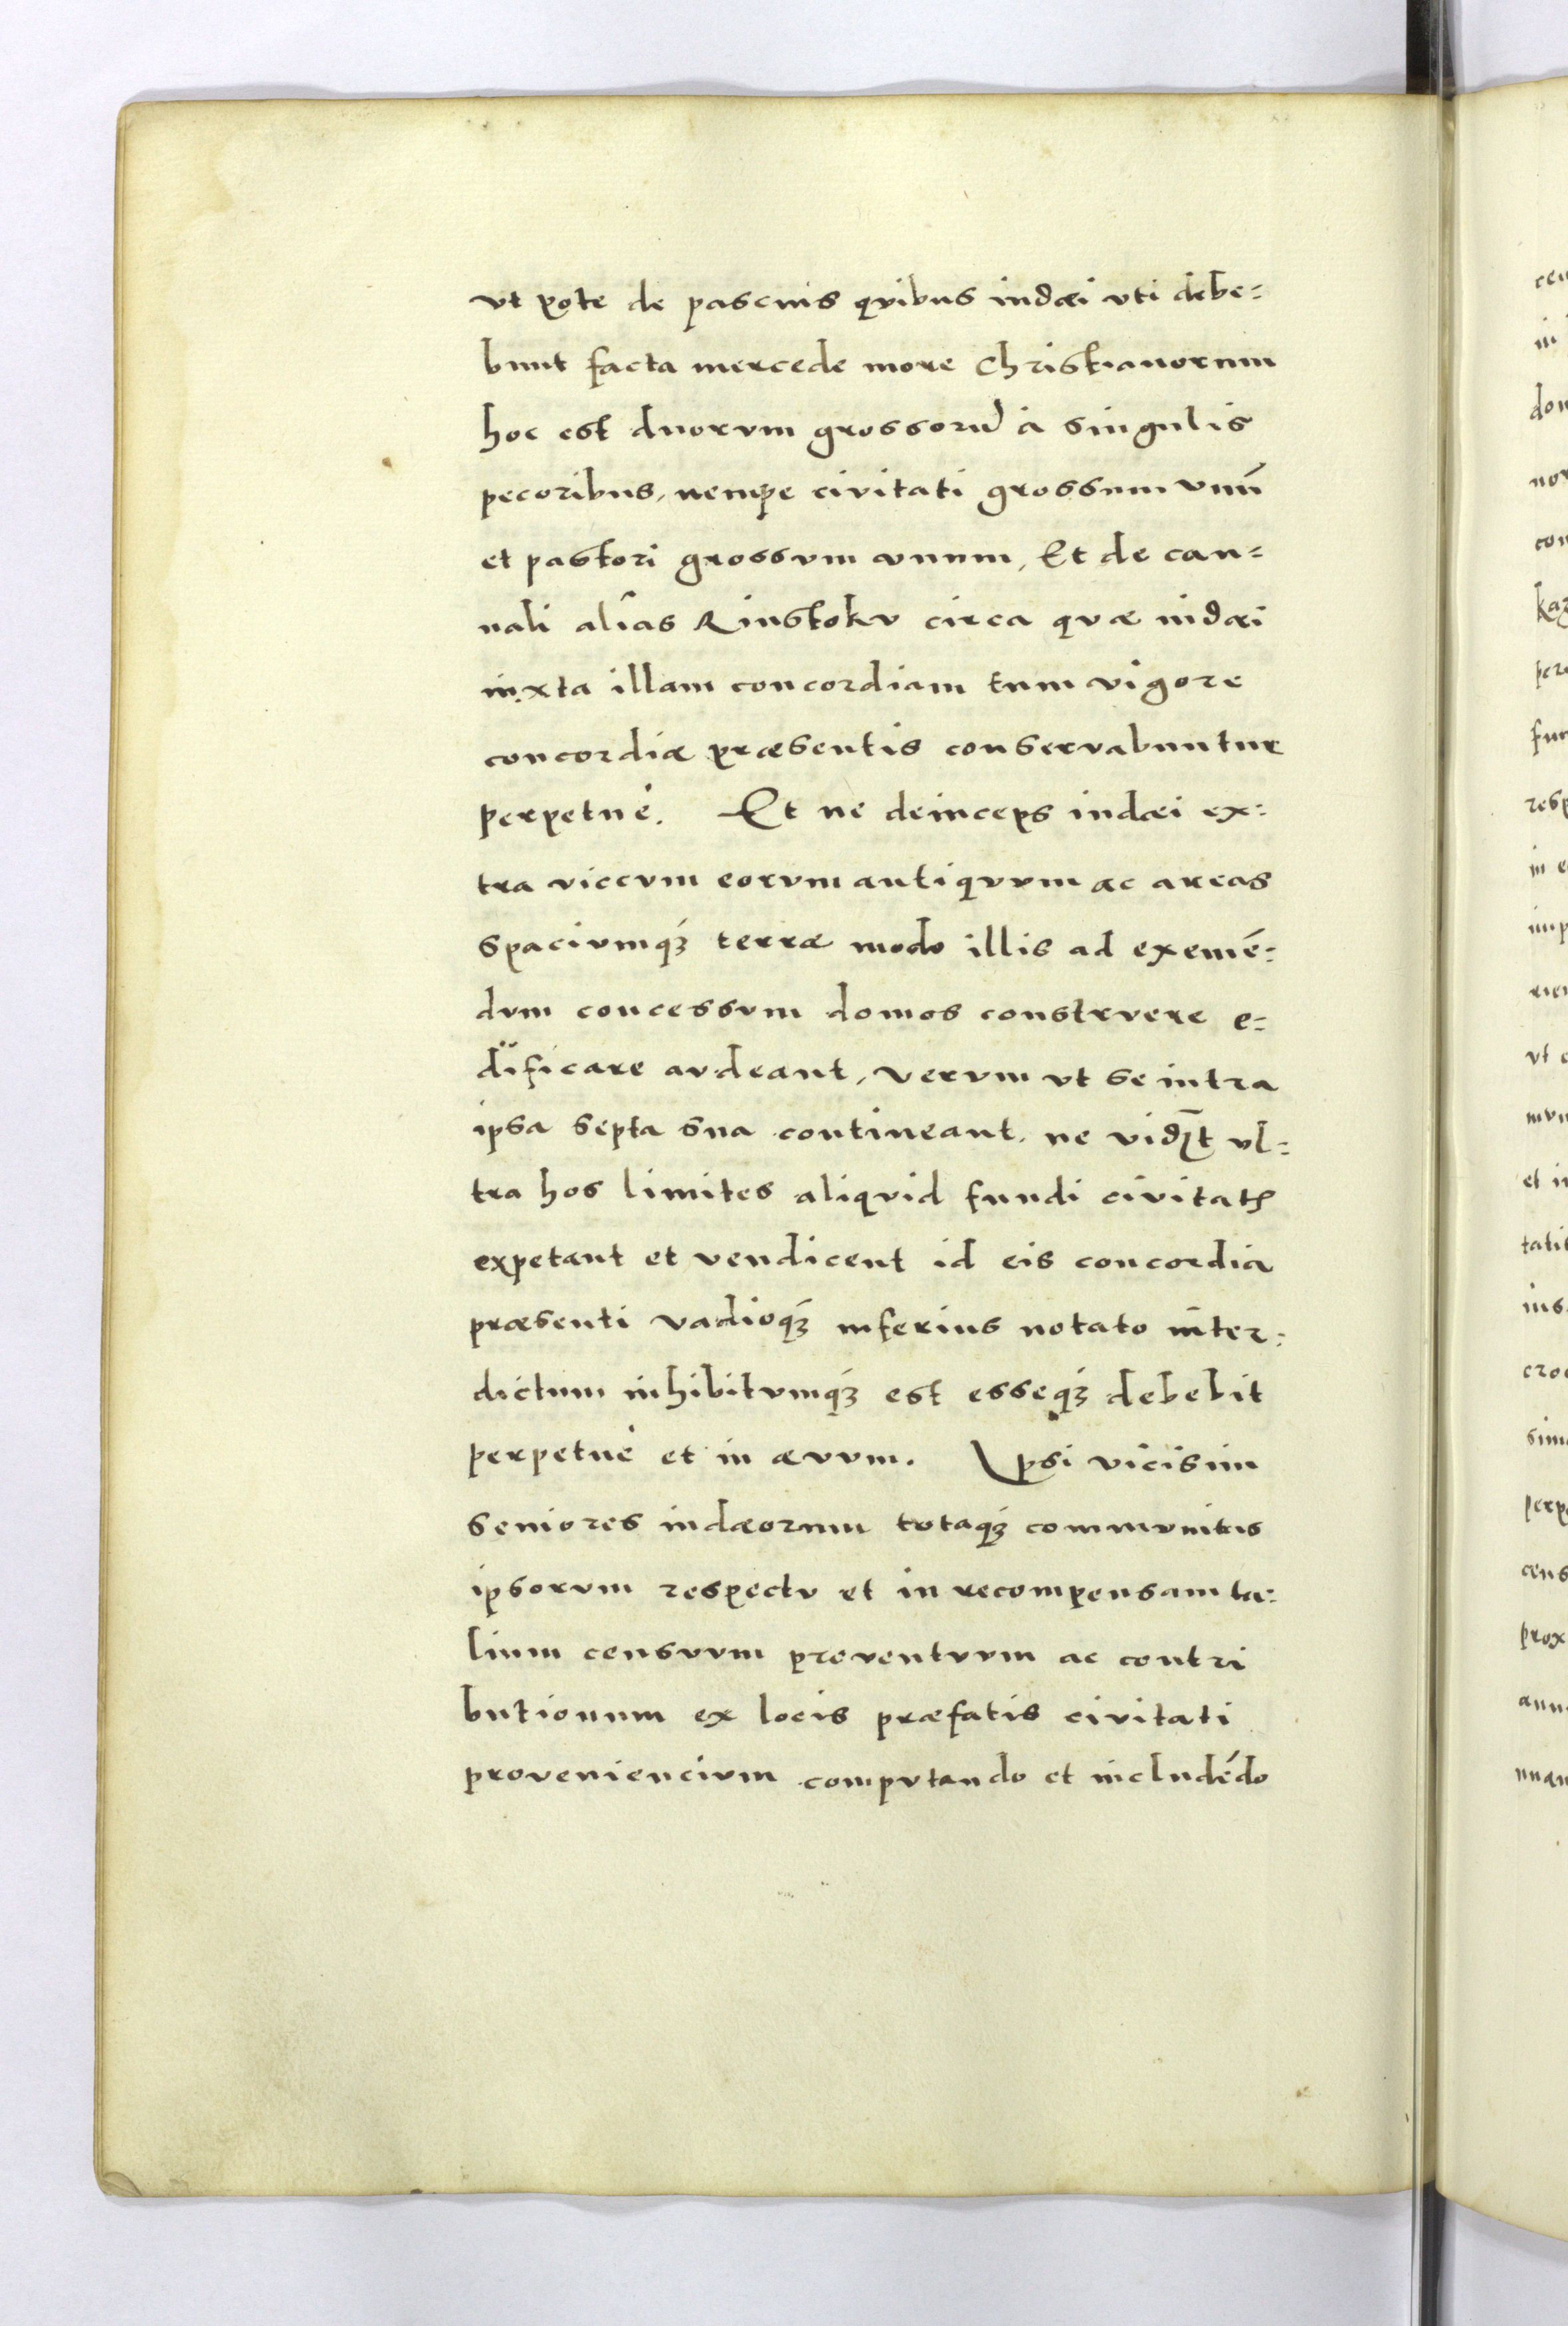 vt pote de pascuis qvibus iudæi vti debe=
bunt facta mercede more Christianorum
hoc est duorvm grossorum à singulis
pecoribus, nempe civitati grossum vnū
et pastori grossvm vnum, Et de can=
nali aliâs Rinstokv circa qvæ iudæi
iuxta illam concordiam tum vigore
concordiæ præsentis conservabuntur
perpetuè. Et ne deinceps iudæi ex=
tra viccvm eorvm antiqvvm ac areas
spacivmqꝫ terræ modo illis ad exemē=
dvm concessvm domos constrvere e=
dificare avdeant, vervm vt se intra
ipsa septa sua contineant, ne vl=
tra hos limites aliqvid fundi civitatꝭ
expetant et vendicent id eis concordia
præsenti vadioqꝫ inferius notato inter=
dictum inhibitvmqꝫ est esseqꝫ debebit
perpetuè et in ævvm. Ipsi vicisim
seniores iudæorum totaqꝫ commvnitas
ipsorvm respectv et in recompensam ta=
lium censvvm proventvvm ac contri
butionum ex locis præfatis civitati
proveniencivm compvtando et includēdo
don